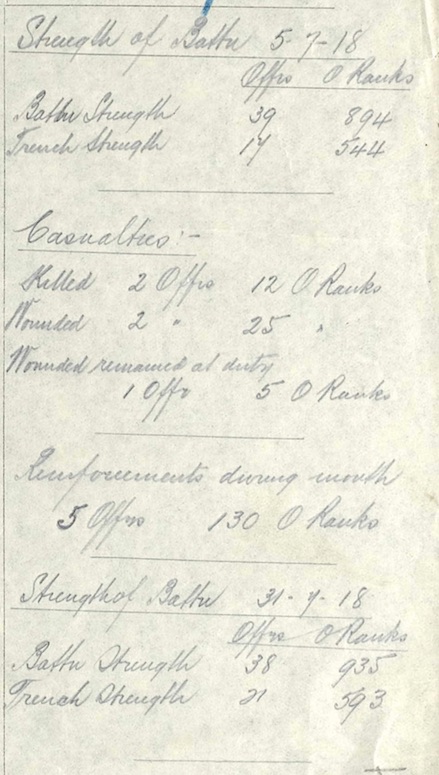 Strength of Battn 5-7-18
Offrs O Ranks
Battn Strength 39 894
Trench Strength 17 544
Casualties :-
Killed 2 Offrs 12 O Ranks
Wounded 2 " 25 "
Wounded remained at duty
1 Offr 5 O Ranks
Reinforcements during month
5 Offrs 130 O Ranks
Strength of Battn 31-7-18
Offrs O Ranks
Battn Strength 38 935
Trench Strength 21 593